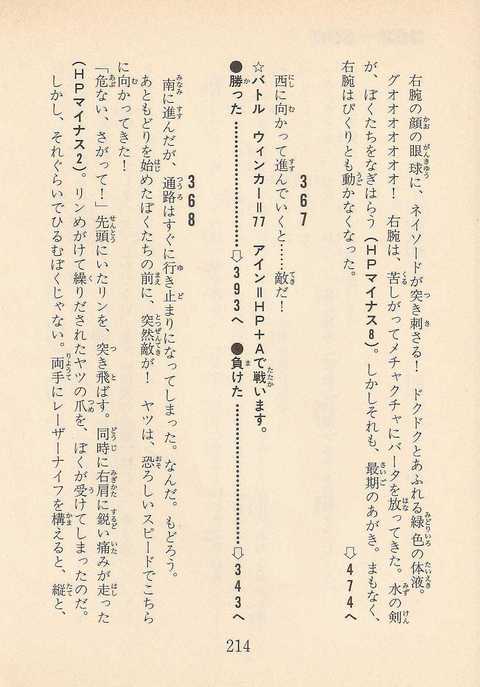 右腕の顔の眼球に、ネイソードが突き刺さる！　ドクドクとあふれる緑色の体液。
グオオオオオオオ！　右腕は、苦しがってメチャクチャにバータを放ってきた。水の剣
が、ぼくたちをなぎはらう（ＨＰマイナス８）。しかしそれも、最期のあがき。まもなく、
右腕はぴくりとも動かなくなった。　⇨４７４へ
３６７
西に向かって進んでいくと……敵だ！
☆バトル　ウィンカー＝77　アイン＝ＨＰ＋Ａで戦います。
●勝った…………………⇨３９３へ　●負けた…………………⇨３４３へ
３６８
南に進んだが、通路はすぐに行き止まりになってしまった。なんだ。もどろう。
あともどりを始めたぼくたちの前に、突然敵が！　ヤツは、恐ろしいスピードでこちら
に向かってきた！
「危ない、さがって！」先頭にいたリンを、突き飛ばす。同時に右肩に鋭い痛みが走った
（ＨＰマイナス２）。リンめがけて繰りだされたヤツの爪を、ぼくが受けてしまったのだ。
しかし、それぐらいでひるむぼくじゃない。両手にレーザーナイフを構えると、縦と、
214